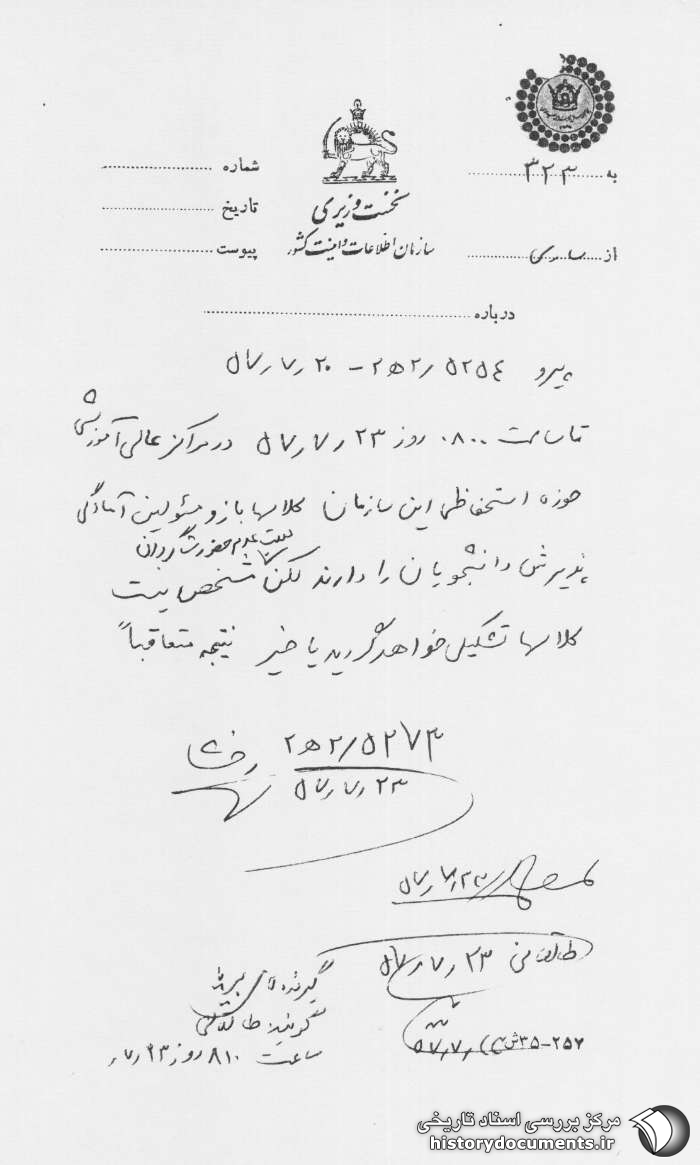 به ۳۲۳
از ساری
شماره
تاریخ
پیوست
نخست وزیری
سازمان اطلاعات و امنیت کشور
درباره
پیرو ۵۲۵۴/۲ﻫ۲ – ۲۰/۷/۵۷
تا ساعت ۰۸۰۰ روز ۲۳/۷/۵۷ در مراکز عالی آموزشی
حوزه استحفاظی این سازمان کلاسها باز و مسئولین آمادگی
پذیرش دانشجویان را دارند لکن بعلت عدم حضور شاگردان مشخص نیست
کلاسها تشکیل خواهد گردید یا خیر نتیجه متعاقباً
۵۲۷۳/۲ﻫ۲
۲۳/۷/۵۷
۲۳/۷/۵۷
طالقانی ۲۳/۷/۵۷
گیرنده
گوینده طالقانی
ساعت ۸۱۰ روز ۲۳/۷
۲۵۲-۳۵ش
مرکز بررسی اسناد تاریخی
historydocuments.ir